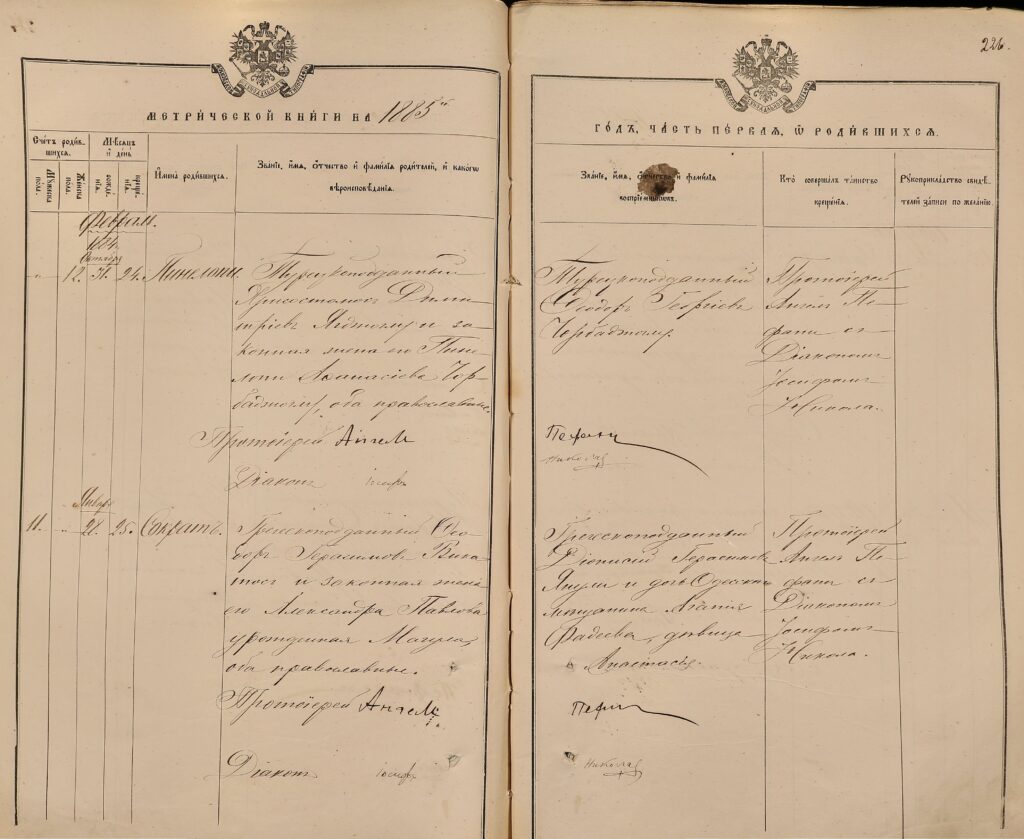 226.
МЕТРИ́ЧЕСКОЙ КНИ́ГИ НА 1885й
ГО́ДЪ, ЧА́СТЬ ПЕ́РВАЯ, Ѿ РОДИ́ВШИХСЯ.
Сче́тъ роди́в-
шихся.
Мꙋ́жеска пола.
Же́нска пола.
Мѣ́сяц
и́ день
рожде́нія.
креще́нія.
И́мена роди́вшихся.
Зва́ніе, и́мя, ѻ҆́тчество и́ фами́лія роди́телей, и́ како́гѡ
вѣроисповѣ́данія.
Зва́ніе, и́мя, ѻ҆́тчество и́ фами́лія
воспріе́мниковъ.
Кто̀ соверша́лъ та́инство
креще́нія.
Рꙋкоприкла́дство свидѣ́-
телей за́писи по жела́нію.
Февраль.
1884.
Октября
" 12. 31. 24. Пинелопи.
Турецкоподданный
Хрисостомос Дими-
тріевъ и за-
конная жена его Пине-
лопи Аѳанасіева Чор-
баджоглу, оба православные.
Протоіерей Ангел
Діаконъ іосифъ
Турецкоподданный
Ѳеодоръ Георгіевъ
Чорбаджоглу.
Протоіерей
Ангелъ Пе-
фани съ
Діакономъ
Іосифомъ
Никола.
Пефани
Николад
Январь
11. " 21. 25. Сократъ.
Греческоподданный Ѳео-
доръ Герасимовъ
и законная жена
его Александра Павлова
урожденная
оба православные.
Протоіерей Ангел
Діаконъ іосифъ
Греческоподданный
Діонисій Герасимовъ
и дочь Одесскаго
мѣщанина
Фадеева, дѣвица
Анастасія.
Протоіерей
Ангелъ Пе-
фани съ
Діакономъ
Іосифомъ
Никола.
Пефани
Николад